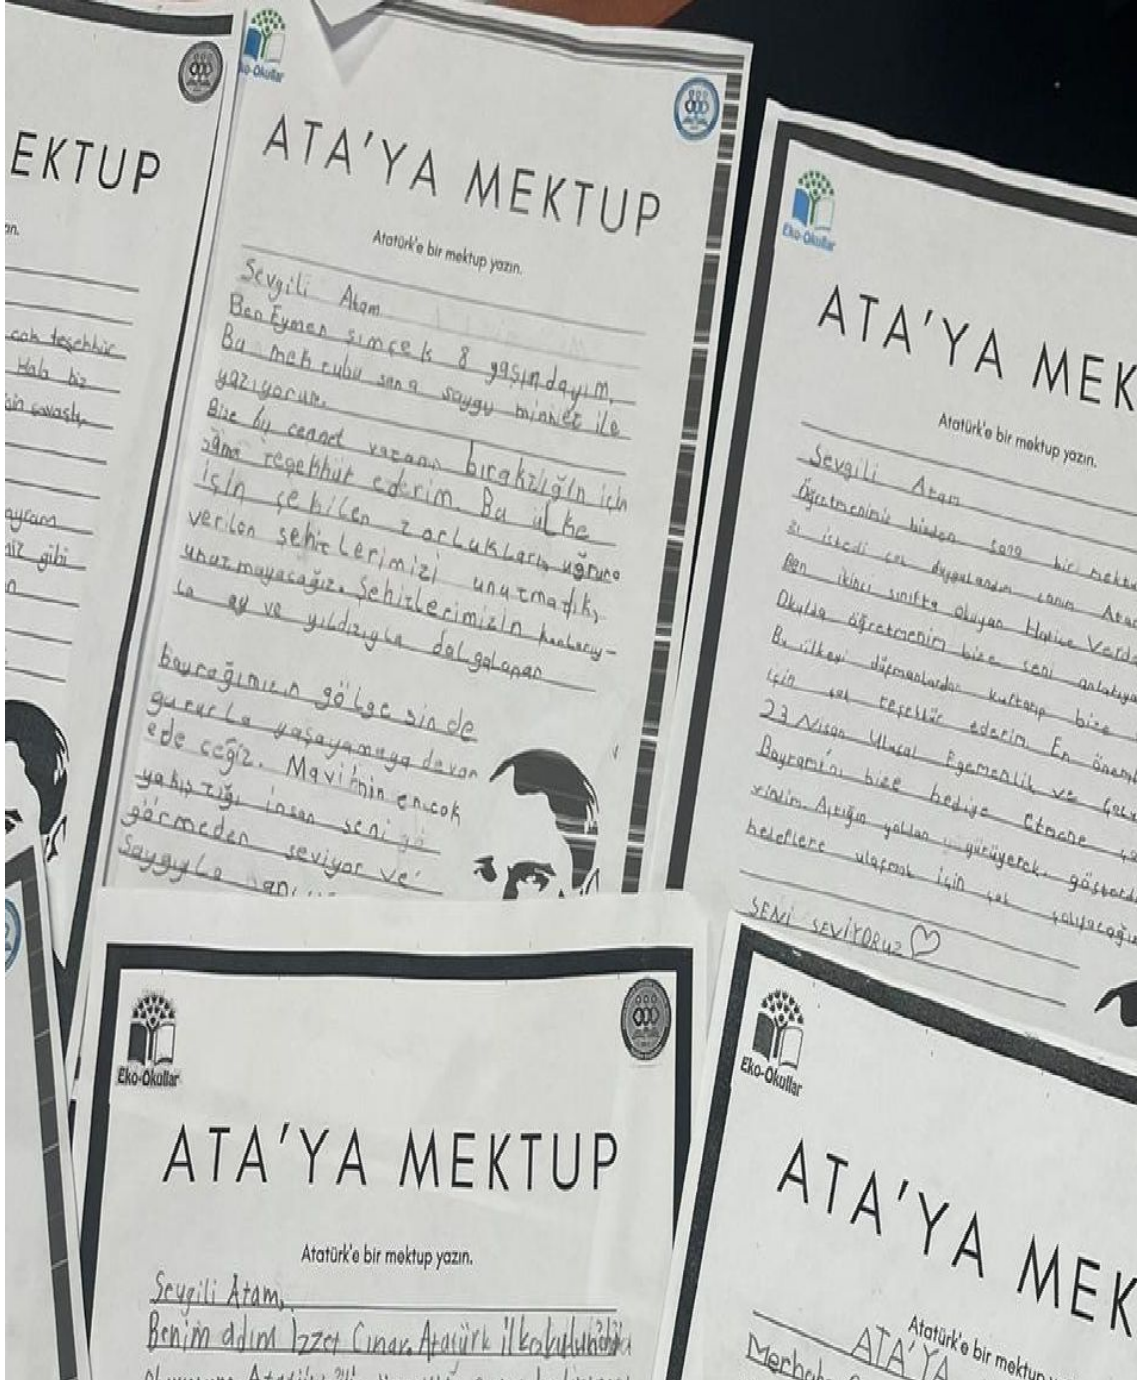 EKTUP
çok teşekkür
Hala biz
için savaştı,
ayram
niz gibi
Eko-Okullar
ATA'YA MEKTUP
Atatürk'e bir mektup yazın.
Sevgili Atam
Ben Eymen şimçek 8 yaşındayım,
Bu mektubu sana saygı minnet ile
yazıyorum.
Bize bu cennet vatanı bıraktığın için
sana teşekkür ederim. Bu ülke
için çekilen zorlukları, uğruna
verilen şehitlerimizi unutmadık,
unutmayacağız. Şehitlerimizin kanlarıy-
la ay ve yıldızıyla dalgalanan
bayrağımızın gölgesinde
gururla yaşayamaya devam
edeceğiz. Mavi'nin en çok
yakıştığı insan seni gö
görmeden seviyor ve
saygıyla
Eko-Okullar
ATA'YA MEK
Atatürk'e bir mektup yazın.
Sevgili Atam
Öğretmenimiz bizden sana bir mektu
istedi çok duygulandım canım Ata
Ben ikinci sınıfta okuyan Hatice Verda
Okulda öğretmenim bize seni anlatıyo
Bu ülkeyi düşmanlardan kurtarıp bize
için çok teşekkür ederim. En öneml
23 Nisan Ulusal Egemenlik ve Çocu
Bayramı'nı bize hediye etmene ço
Açtığın yoldan yürüyerek, gösterdi
hedeflere ulaşmak için çok çalışacağı
SENİ SEVİYORUZ
Eko-Okullar
ATA'YA MEKTUP
Atatürk'e bir mektup yazın.
Sevgili Atam,
Benim adım İzzet Çınar. Atatürk ilkokulunda
Eko-Okullar
ATA'YA MEK
Atatürk'e bir mektup y
ATA'YA
Merhaba